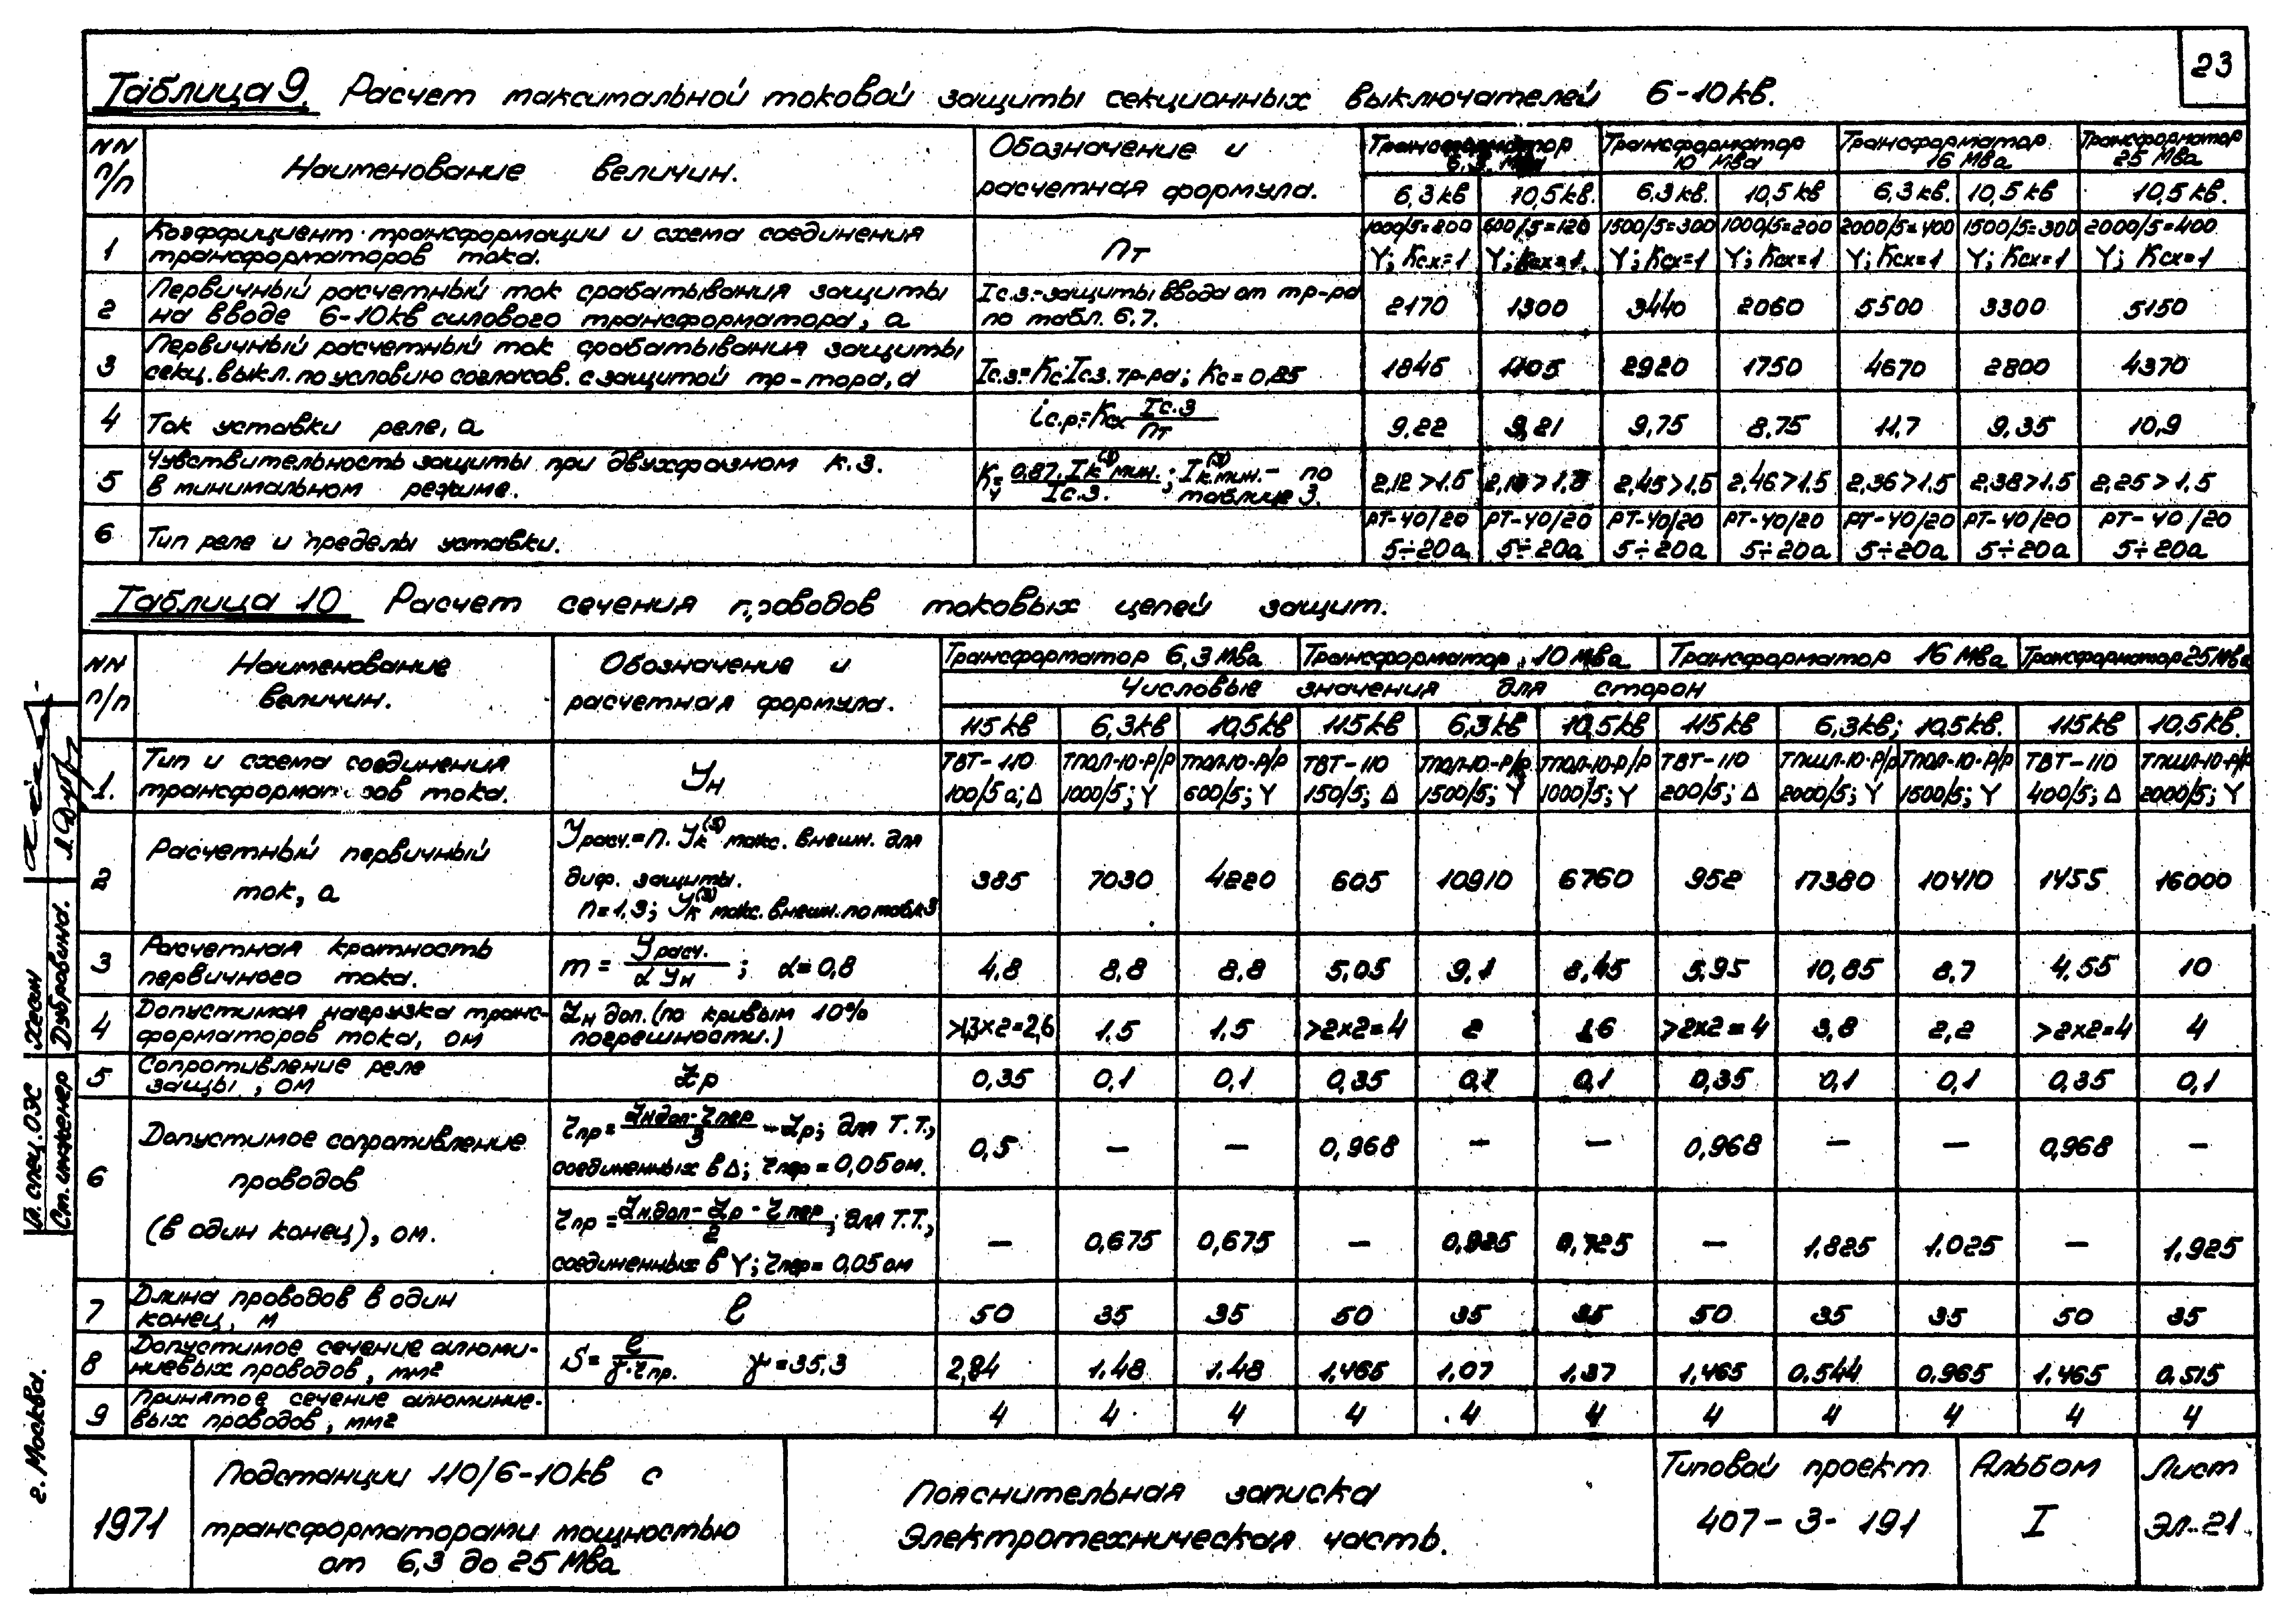 23
Таблица 9. Расчет максимальной токовой защиты секционных выключателей 6-10кв.
NN п/п | Наименование величин. | Обозначение и расчетная формула. | Трансформатор 6,3 Мва | Трансформатор 10 Мва | Трансформатор 16 Мва | Трансформатор 25 Мва
6,3кв | 10,5кв. | 6,3кв. | 10,5кв | 6,3кв. | 10,5кв | 10,5кв.
1 | Коэффициент трансформации и схема соединения трансформаторов тока. | nт | 1000/5=200 Y; Kсх=1 | 600/5=120 Y; Kсх=1. | 1500/5=300 Y; Kсх=1 | 1000/5=200 Y; Kсх=1 | 2000/5=400 Y; Kсх=1 | 1500/5=300 Y; Kсх=1 | 2000/5=400 Y; Kсх=1
2 | Первичный расчетный ток срабатывания защиты на вводе 6-10кв силового трансформатора, а | Iс.з.-защиты ввода от тр-ра по табл. 6,7. | 2170 | 1300 | 3440 | 2060 | 5500 | 3300 | 5150
3 | Первичный расчетный ток срабатывания защиты секц. выкл. по условию согласов. с защитой тр-тора, а | Iс.з=Kс·Iс.з. тр-ра; Kс=0,85 | 1845 | 1105 | 2920 | 1750 | 4670 | 2800 | 4370
4 | Ток уставки реле, а | iс.р.=Kсх Iс.з/nт | 9,22 | 9,21 | 9,75 | 8,75 | 11,7 | 9,35 | 10,9
5 | Чувствительность защиты при двухфазном к.з. в минимальном режиме. | Kч= 0,87. Iк(3) мин./Iс.з. ; Iк(3) мин.- по таблице 3. | 2,12>1,5 | >1,5 | 2,45>1,5 | 2,46>1,5 | 2,36>1,5 | 2,38>1,5 | 2,25>1,5
6 | Тип реле и пределы уставки. | РТ-40/20 5÷20а | РТ-40/20 5÷20а | РТ-40/20 5÷20а | РТ-40/20 5÷20а | РТ-40/20 5÷20а | РТ-40/20 5÷20а | РТ-40/20 5÷20а
Таблица 10 Расчет сечения проводов токовых цепей защит.
NN п/п | Наименование величин. | Обозначение и расчетная формула. | Трансформатор 6,3 Мва | Трансформатор 10 Мва | Трансформатор 16 Мва | Трансформатор 25 Мва
Числовые значения для сторон
115кв | 6,3кв | 10,5кв | 115кв | 6,3кв | 10,5кв | 115кв | 6,3кв; | 10,5кв. | 115кв | 10,5кв.
1. | Тип и схема соединения трансформаторов тока. | Jн | ТВТ-110 100/5 а; Δ | ТПОЛ-10-Р/Р 1000/5; Y | ТПОЛ-10-Р/Р 600/5; Y | ТВТ-110 150/5; Δ | ТПОЛ-10-Р/Р 1500/5; Y | ТПОЛ-10-Р/Р 1000/5; Y | ТВТ-110 200/5; Δ | ТПШЛ-10-Р/Р 2000/5; Y | ТПОЛ-10-Р/Р 1500/5; Y | ТВТ-110 400/5; Δ | ТПШЛ-10-Р/Р 2000/5; Y
2 | Расчетный первичный ток, а | Jрасч.=n. Jк(3) макс. внешн. для диф. защиты. n=1,3; Jк(3) макс. внешн. по табл.3 | 385 | 7030 | 4220 | 605 | 10910 | 6760 | 952 | 17380 | 10410 | 1455 | 16000
3 | Расчетная кратность первичного тока. | m= Jрасч./α Jн ; α=0,8 | 4,8 | 8,8 | 8,8 | 5,05 | 9,1 | 8,45 | 5,95 | 10,85 | 8,7 | 4,55 | 10
4 | Допустимая нагрузка трансформаторов тока, ом | Zн доп. (по кривым 10% погрешности.) | >1,3×2=2,6 | 1,5 | 1,5 | >2×2=4 | 2 | 1,6 | >2×2=4 | 3,8 | 2,2 | >2×2=4 | 4
5 | Сопротивление реле защы, ом | Zр | 0,35 | 0,1 | 0,1 | 0,35 | 0,1 | 0,1 | 0,35 | 0,1 | 0,1 | 0,35 | 0,1
6 | Допустимое сопротивление проводов (в один конец), ом. | rпр= Zн.доп-rпер/3 -Zр; для Т.Т., соединенных в Δ; rпер=0,05ом. | 0,5 | — | — | 0,968 | — | — | 0,968 | — | — | 0,968 | —
rпр= Zн.доп-Zр-rпер/2 ; для Т.Т., соединенных в Y; rпер=0,05ом | — | 0,675 | 0,675 | — | 0,925 | 0,725 | — | 1,825 | 1,025 | — | 1,925
7 | Длина проводов в один конец, м | ℓ | 50 | 35 | 35 | 50 | 35 | 35 | 50 | 35 | 35 | 50 | 35
8 | Допустимое сечение алюминиевых проводов, мм2 | S= ℓ/γ·rпр. γ=35,3 | 2,84 | 1,48 | 1,48 | 1,465 | 1,07 | 1,37 | 1,465 | 0,544 | 0,965 | 1,465 | 0,515
9 | Принятое сечение алюминиевых проводов, мм2 | 4 | 4 | 4 | 4 | 4 | 4 | 4 | 4 | 4 | 4 | 4
Гл. спец. ОЭС Хесин
Ст. инженер Дубровина.
г. Москва.
1971 | Подстанции 110/6-10кв с трансформаторами мощностью от 6,3 до 25 Мва | Пояснительная записка Электротехническая часть. | Типовой проект 407-3-191 | Альбом I | Лист ЭЛ-21